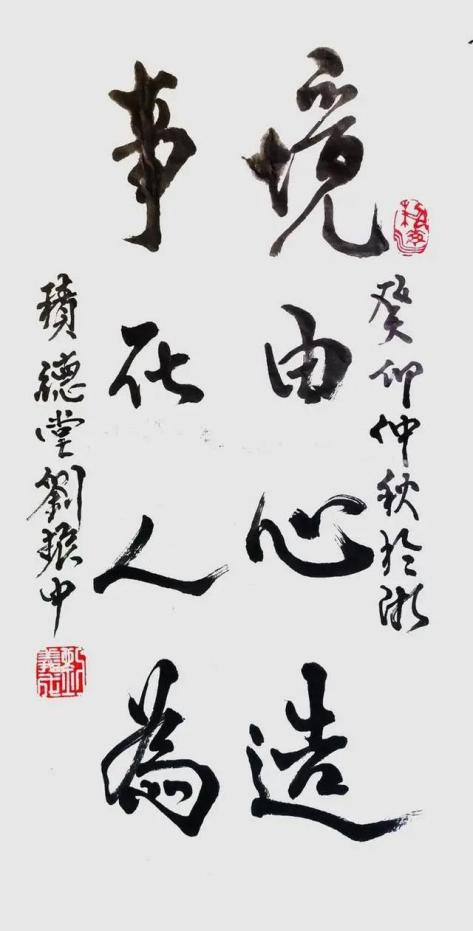 癸卯仲秋於浙
境由心造
事在人為
積德堂劉振中